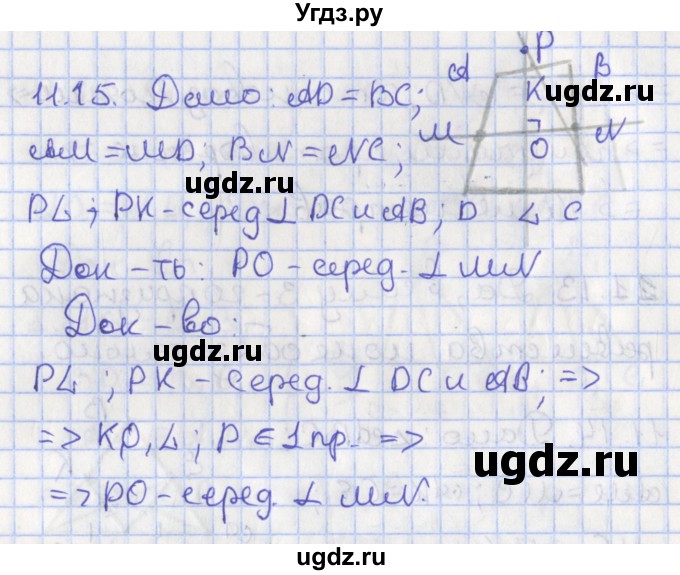 Угдз.ру
P
A
B
11.15. Дано: AD = BC;
K
ugdz.ru
M
N
AM = MD; BN = NC;
O
ugdz.ru
PL; PK - серед ⊥ DC и AB; D L C
Док-ть: PO - серед. ⊥ MN
Док-во:
ugdz.ru
PL; PK - серед. ⊥ DC и AB; =>
=> KO, L; P ∈ 1 пр. =>
ugdz.ru
=> PO - серед. ⊥ MN.
ugdz.ru
ugdz.ru